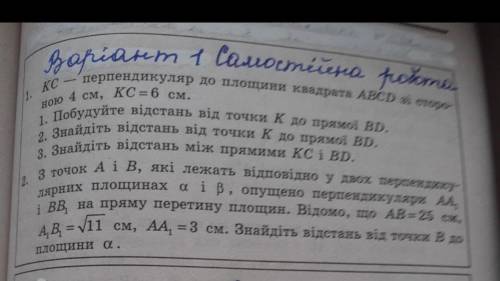 Варіант 1 Самостійна робота
1. KC — перпендикуляр до площини квадрата ABCD зі сторо-
ною 4 см, KC = 6 см.
1. Побудуйте відстань від точки K до прямої BD.
2. Знайдіть відстань від точки K до прямої BD.
3. Знайдіть відстань між прямими KC і BD.
2. З точок A і B, які лежать відповідно у двох перпендику-
лярних площинах α і β, опущено перпендикуляри AA₁
і BB₁ на пряму перетину площин. Відомо, що AB = 25 см,
A₁B₁ = √11 см, AA₁ = 3 см. Знайдіть відстань від точки B до
площини α.